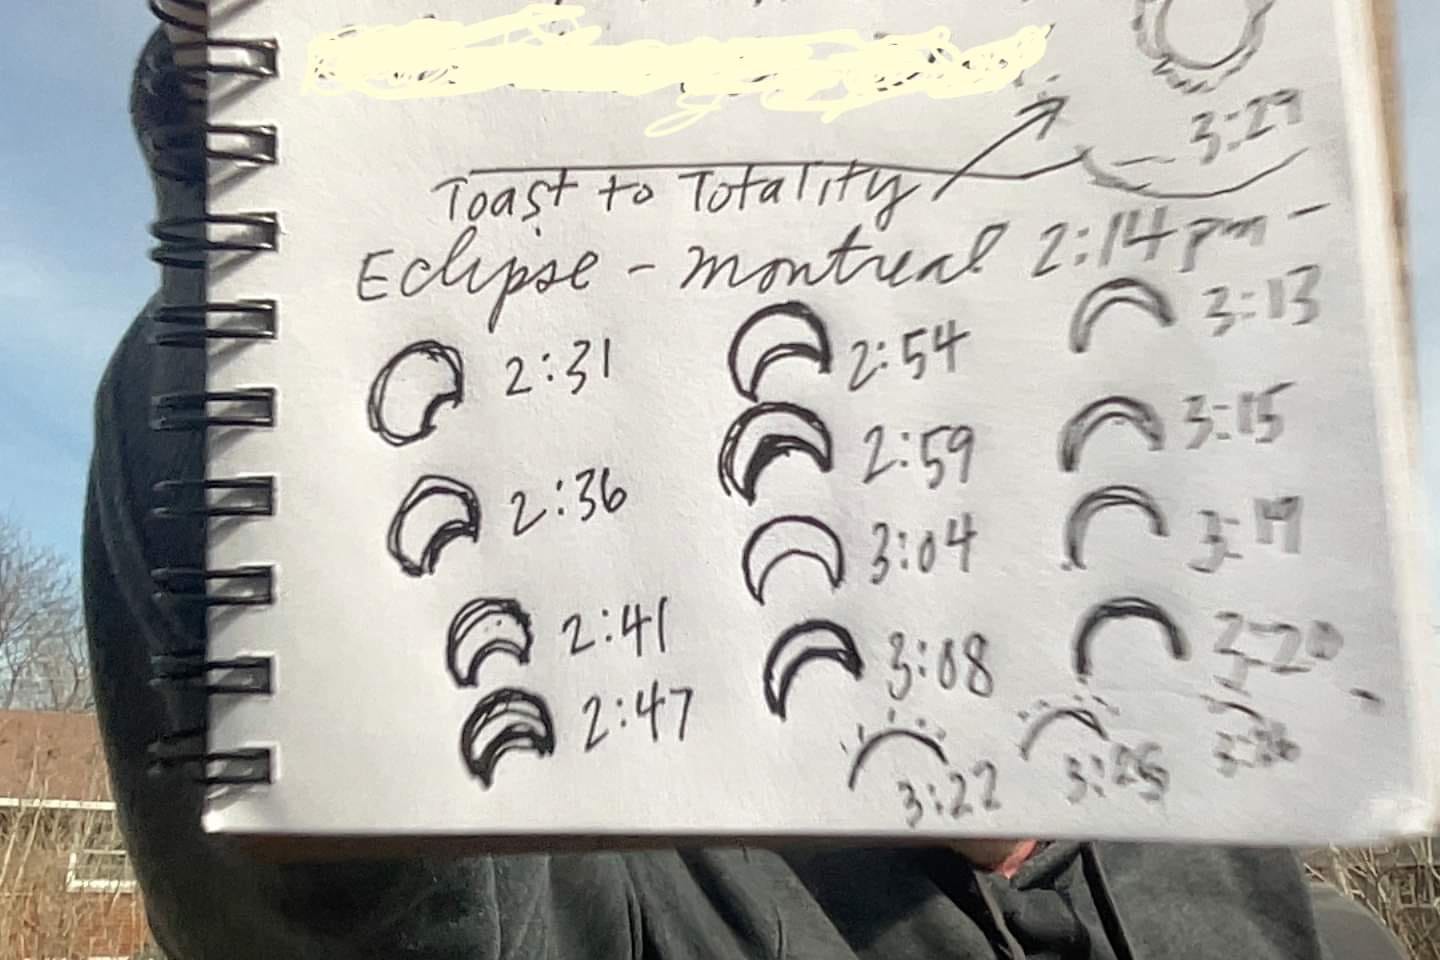 3:27
Toast to Totality
Eclipse - Montreal 2:14pm -
2:31
2:36
2:41
2:47
2:54
2:59
3:04
3:08
3:13
3:15
3:17
3:20
3:22
3:25
3:26